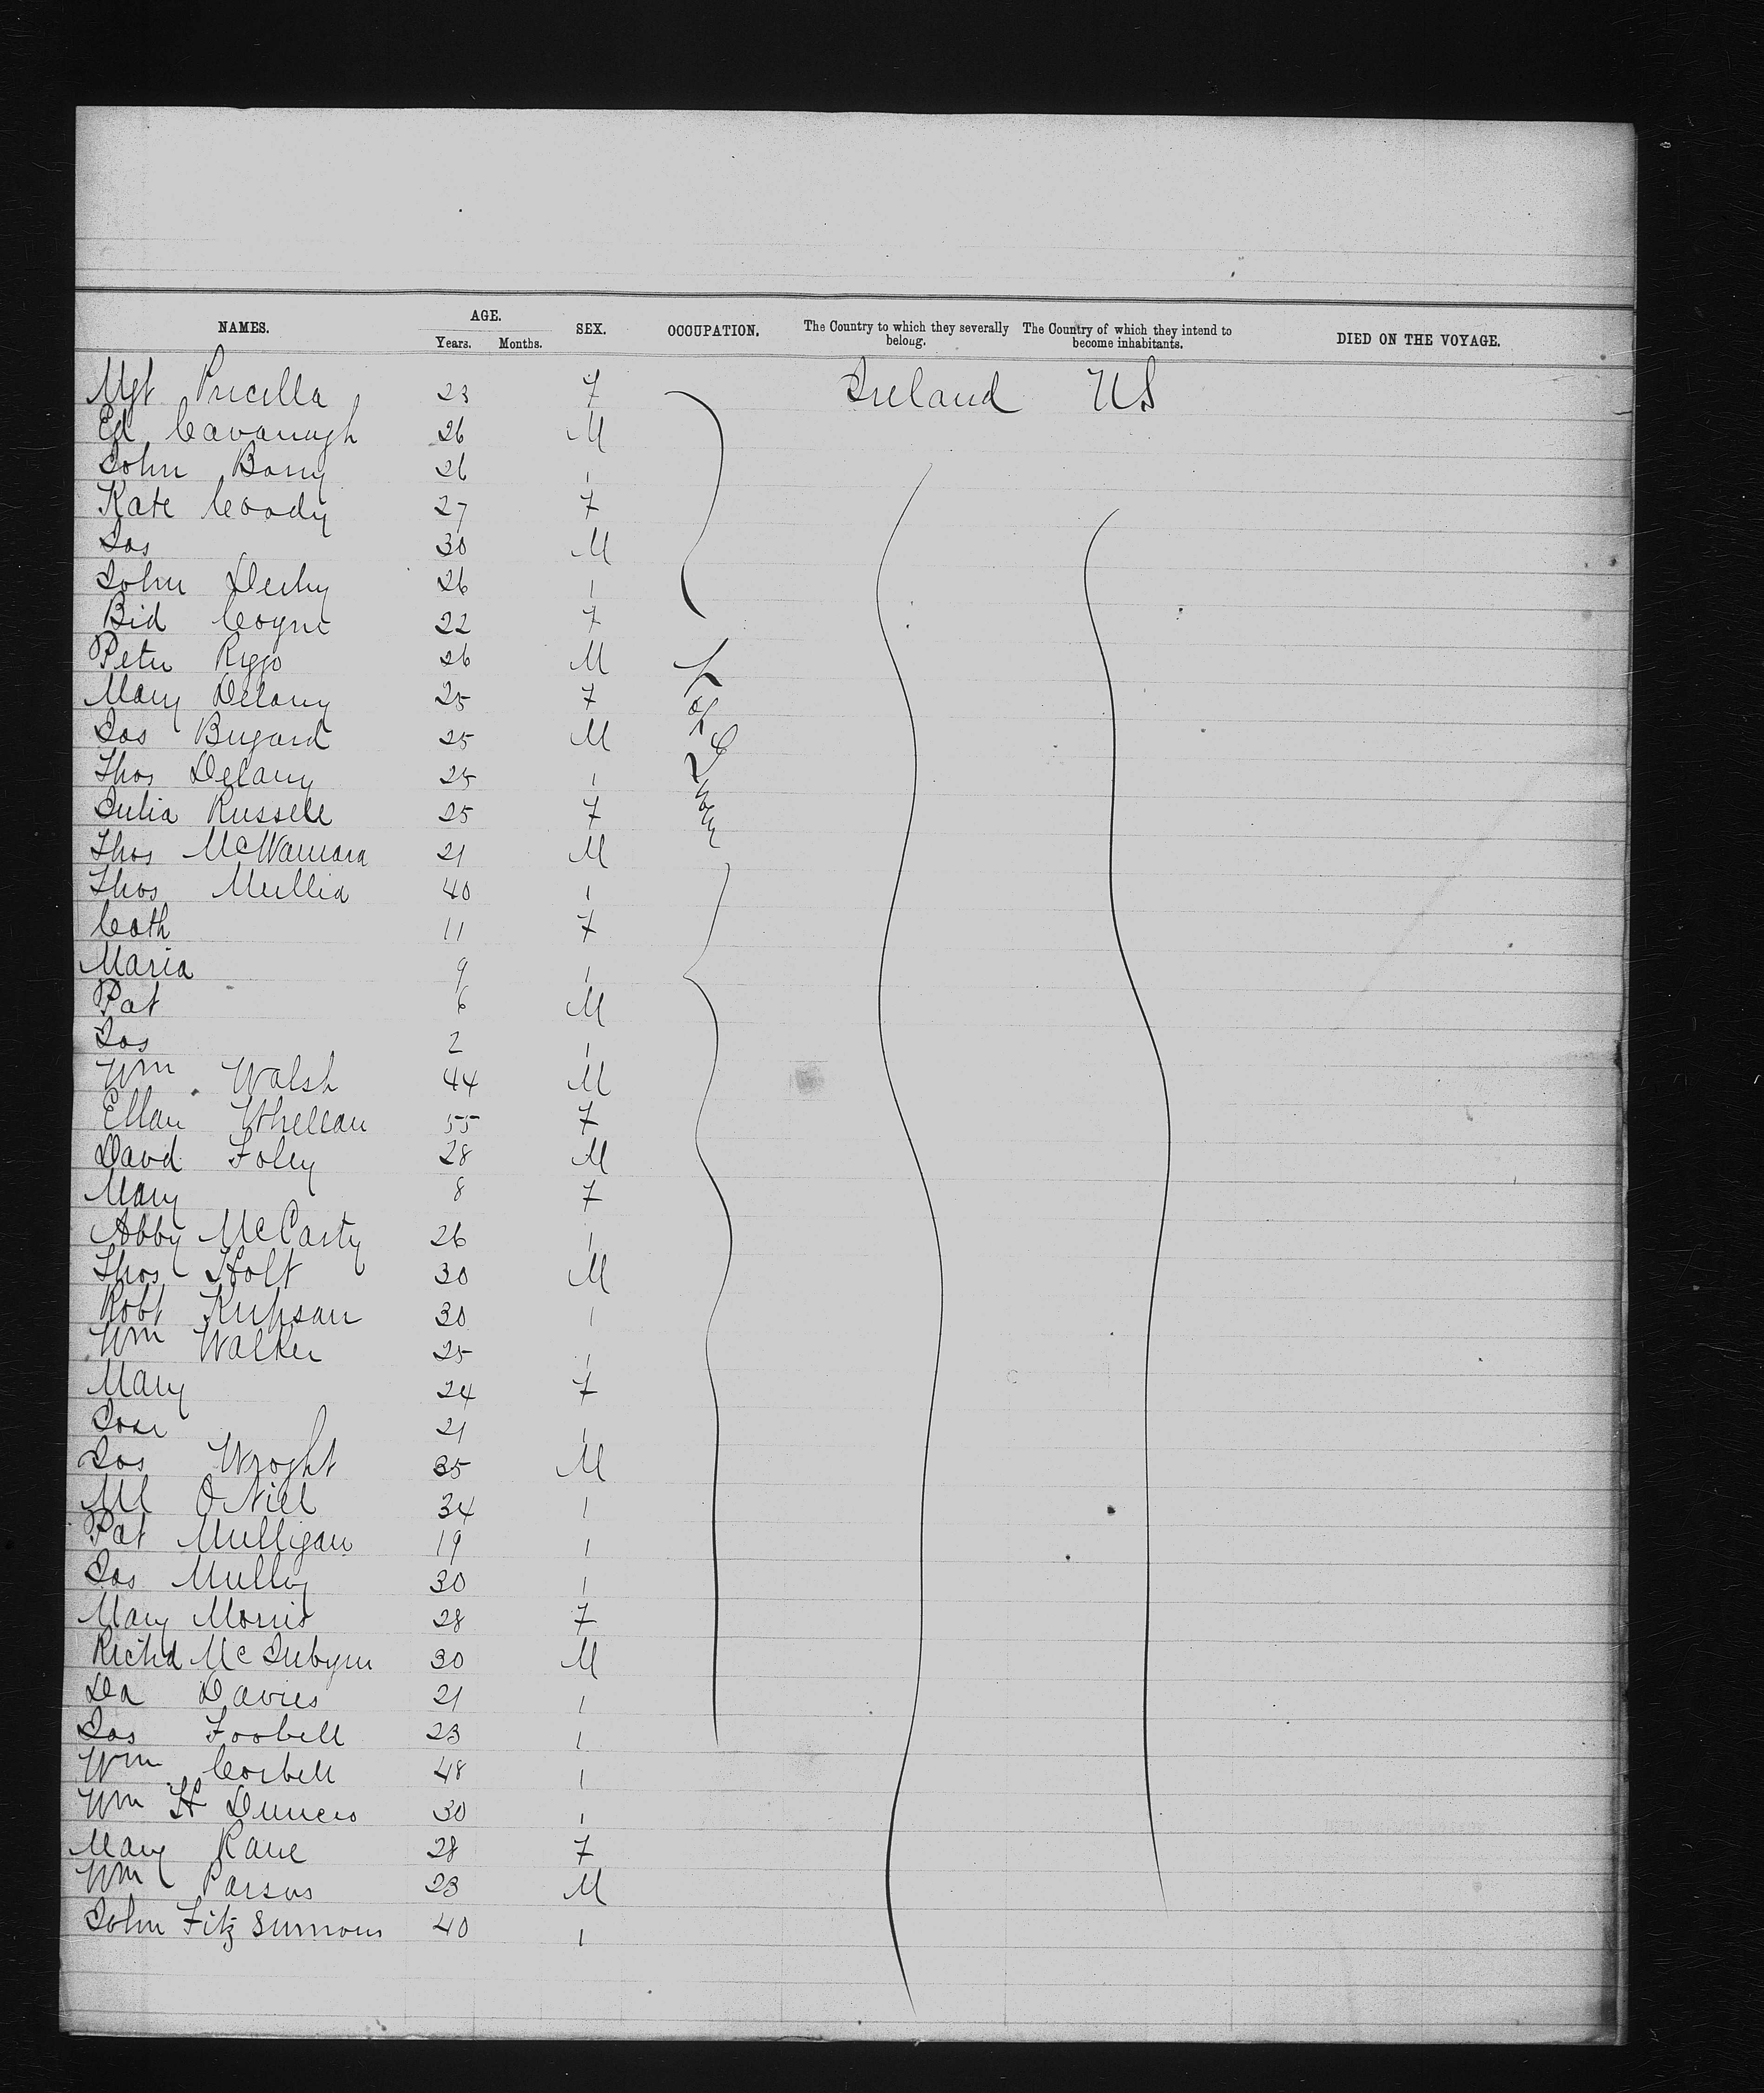 NAMES. AGE. SEX. OCCUPATION. The Country to which they severally belong. The Country of which they intend to become inhabitants. DIED ON THE VOYAGE.
Years. Months.
Mgt Pricilla 23 F Ireland US
Ed Cavanagh 26 M
John Barry 26 1
Kate Coody 27 F
Jas 30 M
John Derby 26 1
Bid Coyne 22 F
Peter Riggs 26 M
Mary Delany 25 F
Jas Bugard 25 M
Thos Delany 25 1
Julia Russell 25 F
Thos McNamara 21 M
Thos Mullia 40 1
Cath 11 F
Maria 9 1
Pat 6 M
Jas 2 1
Wm Walsh 44 M
Ellan Whellan 55 F
David Foley 28 M
Mary 8 F
Abby McCarty 26 1
Thos Holt 30 M
Robt 30 1
Wm Walker 25 1
Mary 24 F
Jose 21 1
Jas Wroght 35 M
Ml O Niel 34 1
Pat Mulligan 19 1
Jas Mulloy 30 1
Mary Morris 28 F
Richd Mc 30 M
Da Davies 21 1
Jas Foobell 23 1
Wm Corbell 48 1
Wm H 30 1
Mary Kane 28 F
Wm Parsus 23 M
John Fitz Simmons 40 1